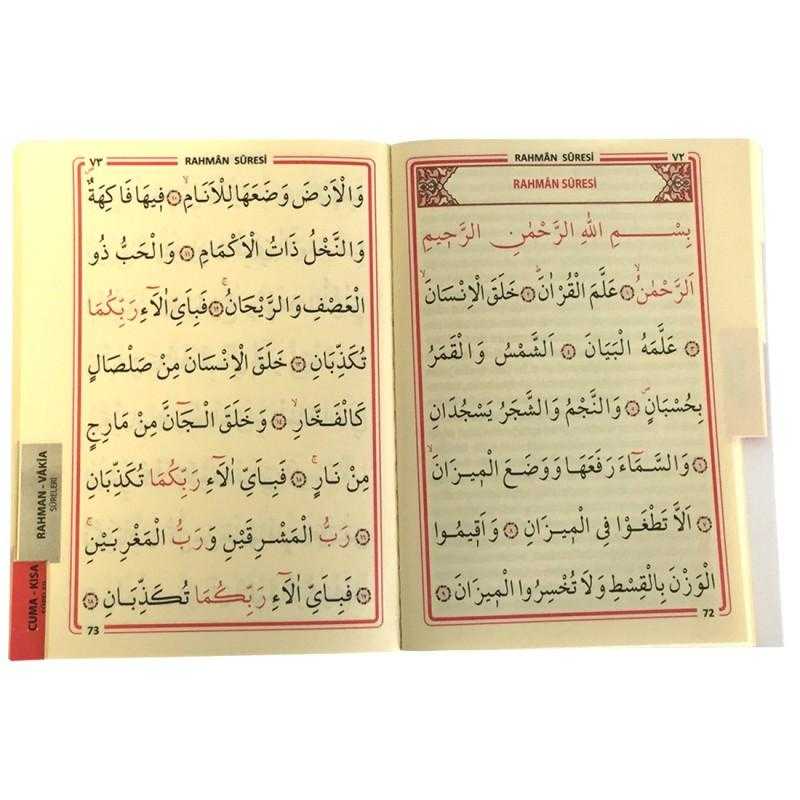 RAHMÂN SÛRESİ ٧٢
RAHMÂN SÛRESİ
بِسْمِ اللّٰهِ الرَّحْمٰنِ الرَّح۪يمِ
اَلرَّحْمٰنُۙ ﴿١﴾ عَلَّمَ الْقُرْاٰنَۜ ﴿٢﴾ خَلَقَ الْاِنْسَانَۙ
﴿٣﴾ عَلَّمَهُ الْبَيَانَ ﴿٤﴾ اَلشَّمْسُ وَالْقَمَرُ
بِحُسْبَانٍۖ ﴿٥﴾ وَالنَّجْمُ وَالشَّجَرُ يَسْجُدَانِ
﴿٦﴾ وَالسَّمَٓاءَ رَفَعَهَا وَوَضَعَ الْم۪يزَانَۙ
﴿٧﴾ اَلَّا تَطْغَوْا فِي الْم۪يزَانِ ﴿٨﴾ وَاَق۪يمُوا
الْوَزْنَ بِالْقِسْطِ وَلَا تُخْسِرُوا الْم۪يزَانَ ﴿٩﴾
72
٧٣ RAHMÂN SÛRESİ
وَالْاَرْضَ وَضَعَهَا لِلْاَنَامِۙ ﴿١٠﴾ ف۪يهَا فَاكِهَةٌۖ
وَالنَّخْلُ ذَاتُ الْاَكْمَامِ ﴿١١﴾ وَالْحَبُّ ذُو
الْعَصْفِ وَالرَّيْحَانُۚ ﴿١٢﴾ فَبِاَيِّ اٰلَٓاءِ رَبِّكُمَا
تُكَذِّبَانِ ﴿١٣﴾ خَلَقَ الْاِنْسَانَ مِنْ صَلْصَالٍ
كَالْفَخَّارِۙ ﴿١٤﴾ وَخَلَقَ الْجَٓانَّ مِنْ مَارِجٍ
مِنْ نَارٍۚ ﴿١٥﴾ فَبِاَيِّ اٰلَٓاءِ رَبِّكُمَا تُكَذِّبَانِ
﴿١٦﴾ رَبُّ الْمَشْرِقَيْنِ وَرَبُّ الْمَغْرِبَيْنِۚ
﴿١٧﴾ فَبِاَيِّ اٰلَٓاءِ رَبِّكُمَا تُكَذِّبَانِ ﴿١٨﴾
73
RAHMAN - VÂKİA
SÛRELERİ
CUMA - KISA